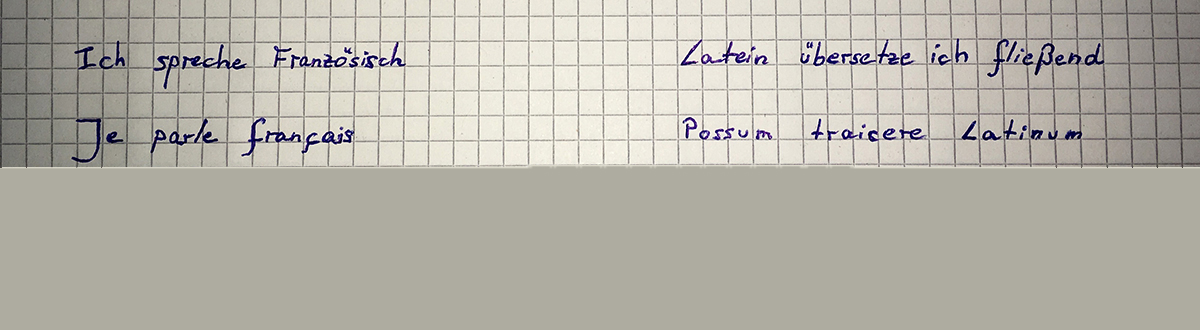 Ich spreche Französisch
Je parle français
Latein übersetze ich fließend
Possum traicere Latinum